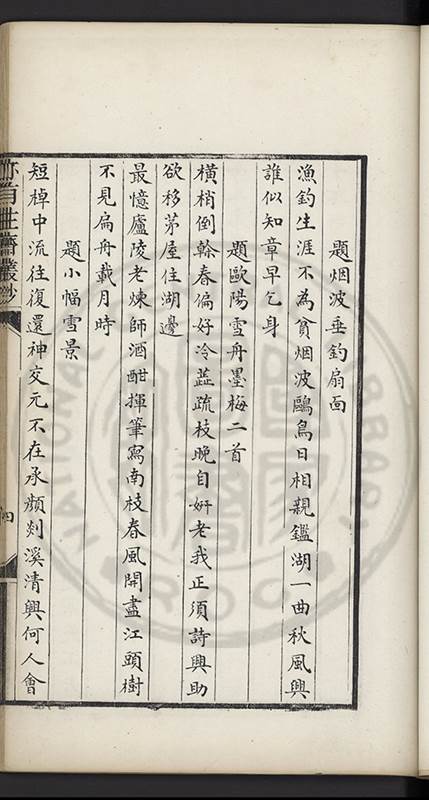 題烟波垂釣扇面
漁釣生涯不為貧烟波鷗鳥日相親鑑湖一曲秋風興
誰似知章早乞身
題歐陽雪舟墨梅二首
橫梢倒榦春偏好冷蕋疏枝晚自妍老我正須詩興助
欲移茅屋住湖邊
最憶廬陵老煉師酒酣揮筆寫南枝春風開盡江頭樹
不見扁舟載月時
題小幅雪景
短棹中流往復還神交元不在承顏剡溪清興何人會
四
NATIONAL
ROC